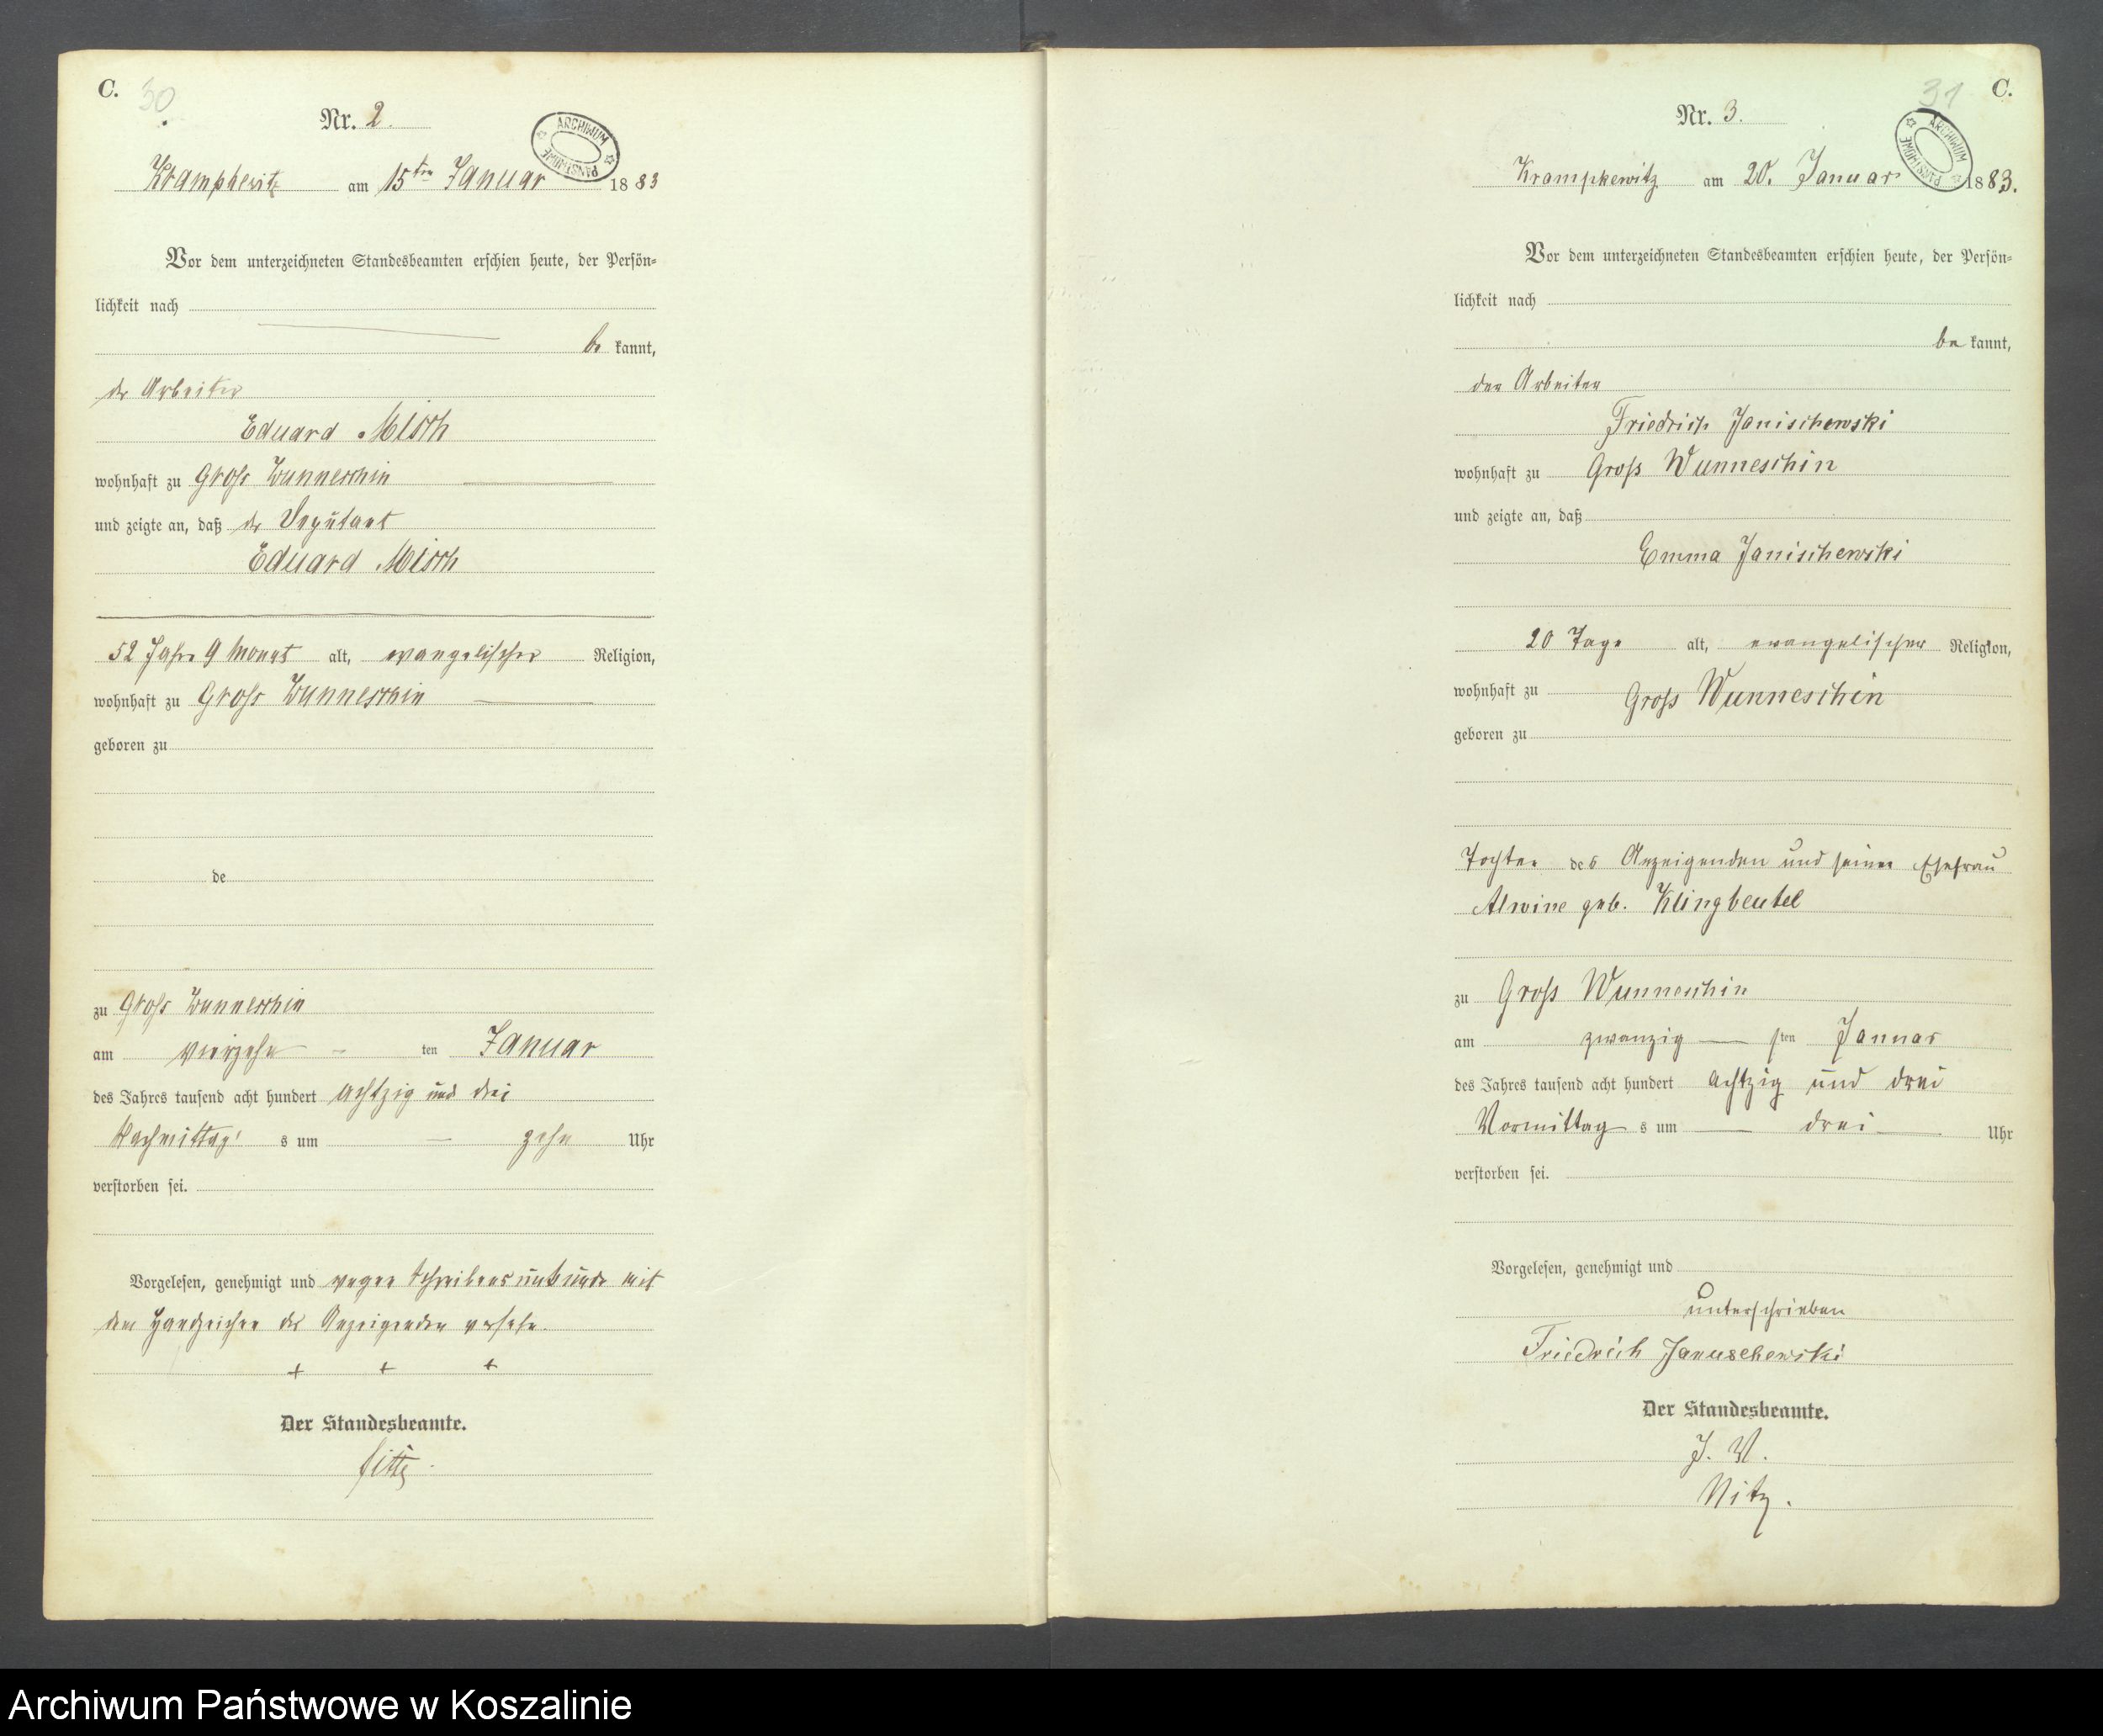 C. 30
Nr. 2.
ARCHIWUM PAŃSTWOWE
Krampkewitz am 15ten Januar 1883
Vor dem unterzeichneten Standesbeamten erschien heute, der Persön=
lichkeit nach
be kannt,
der Arbeiter
Eduard Misch
wohnhaft zu Groß Wunneschin
und zeigte an, daß der Deputant
Eduard Misch
52 Jahre 9 Monat alt, evangelischer Religion,
wohnhaft zu Groß Wunneschin
geboren zu
de
zu Groß Wunneschin
am vierzehn ten Januar
des Jahres tausend acht hundert achtzig und drei
Nachmittag s um zehn Uhr
verstorben sei.
Vorgelesen, genehmigt und wegen Schreibensunkunde mit
dem Handzeichen des Anzeigenden versehn.
+ + +
Der Standesbeamte.
31 C.
Nr. 3.
ARCHIWUM PAŃSTWOWE
Krampkewitz am 20. Januar 1883.
Vor dem unterzeichneten Standesbeamten erschien heute, der Persön=
lichkeit nach
be kannt,
der Arbeiter
Friedrich Janischewski
wohnhaft zu Groß Wunneschin
und zeigte an, daß
Emma Janischewski
20 Tage alt, evangelischer Religion,
wohnhaft zu Groß Wunneschin
geboren zu
Tochter des Anzeigenden und seiner Ehefrau
Alwine geb. Klingbeutel
zu Groß Wunneschin
am zwanzig sten Januar
des Jahres tausend acht hundert achtzig und drei
Vormittag s um drei Uhr
verstorben sei.
Vorgelesen, genehmigt und
unterschrieben
Friedrich Januschewski
Der Standesbeamte.
J. V.
Nitz.
Archiwum Państwowe w Koszalinie